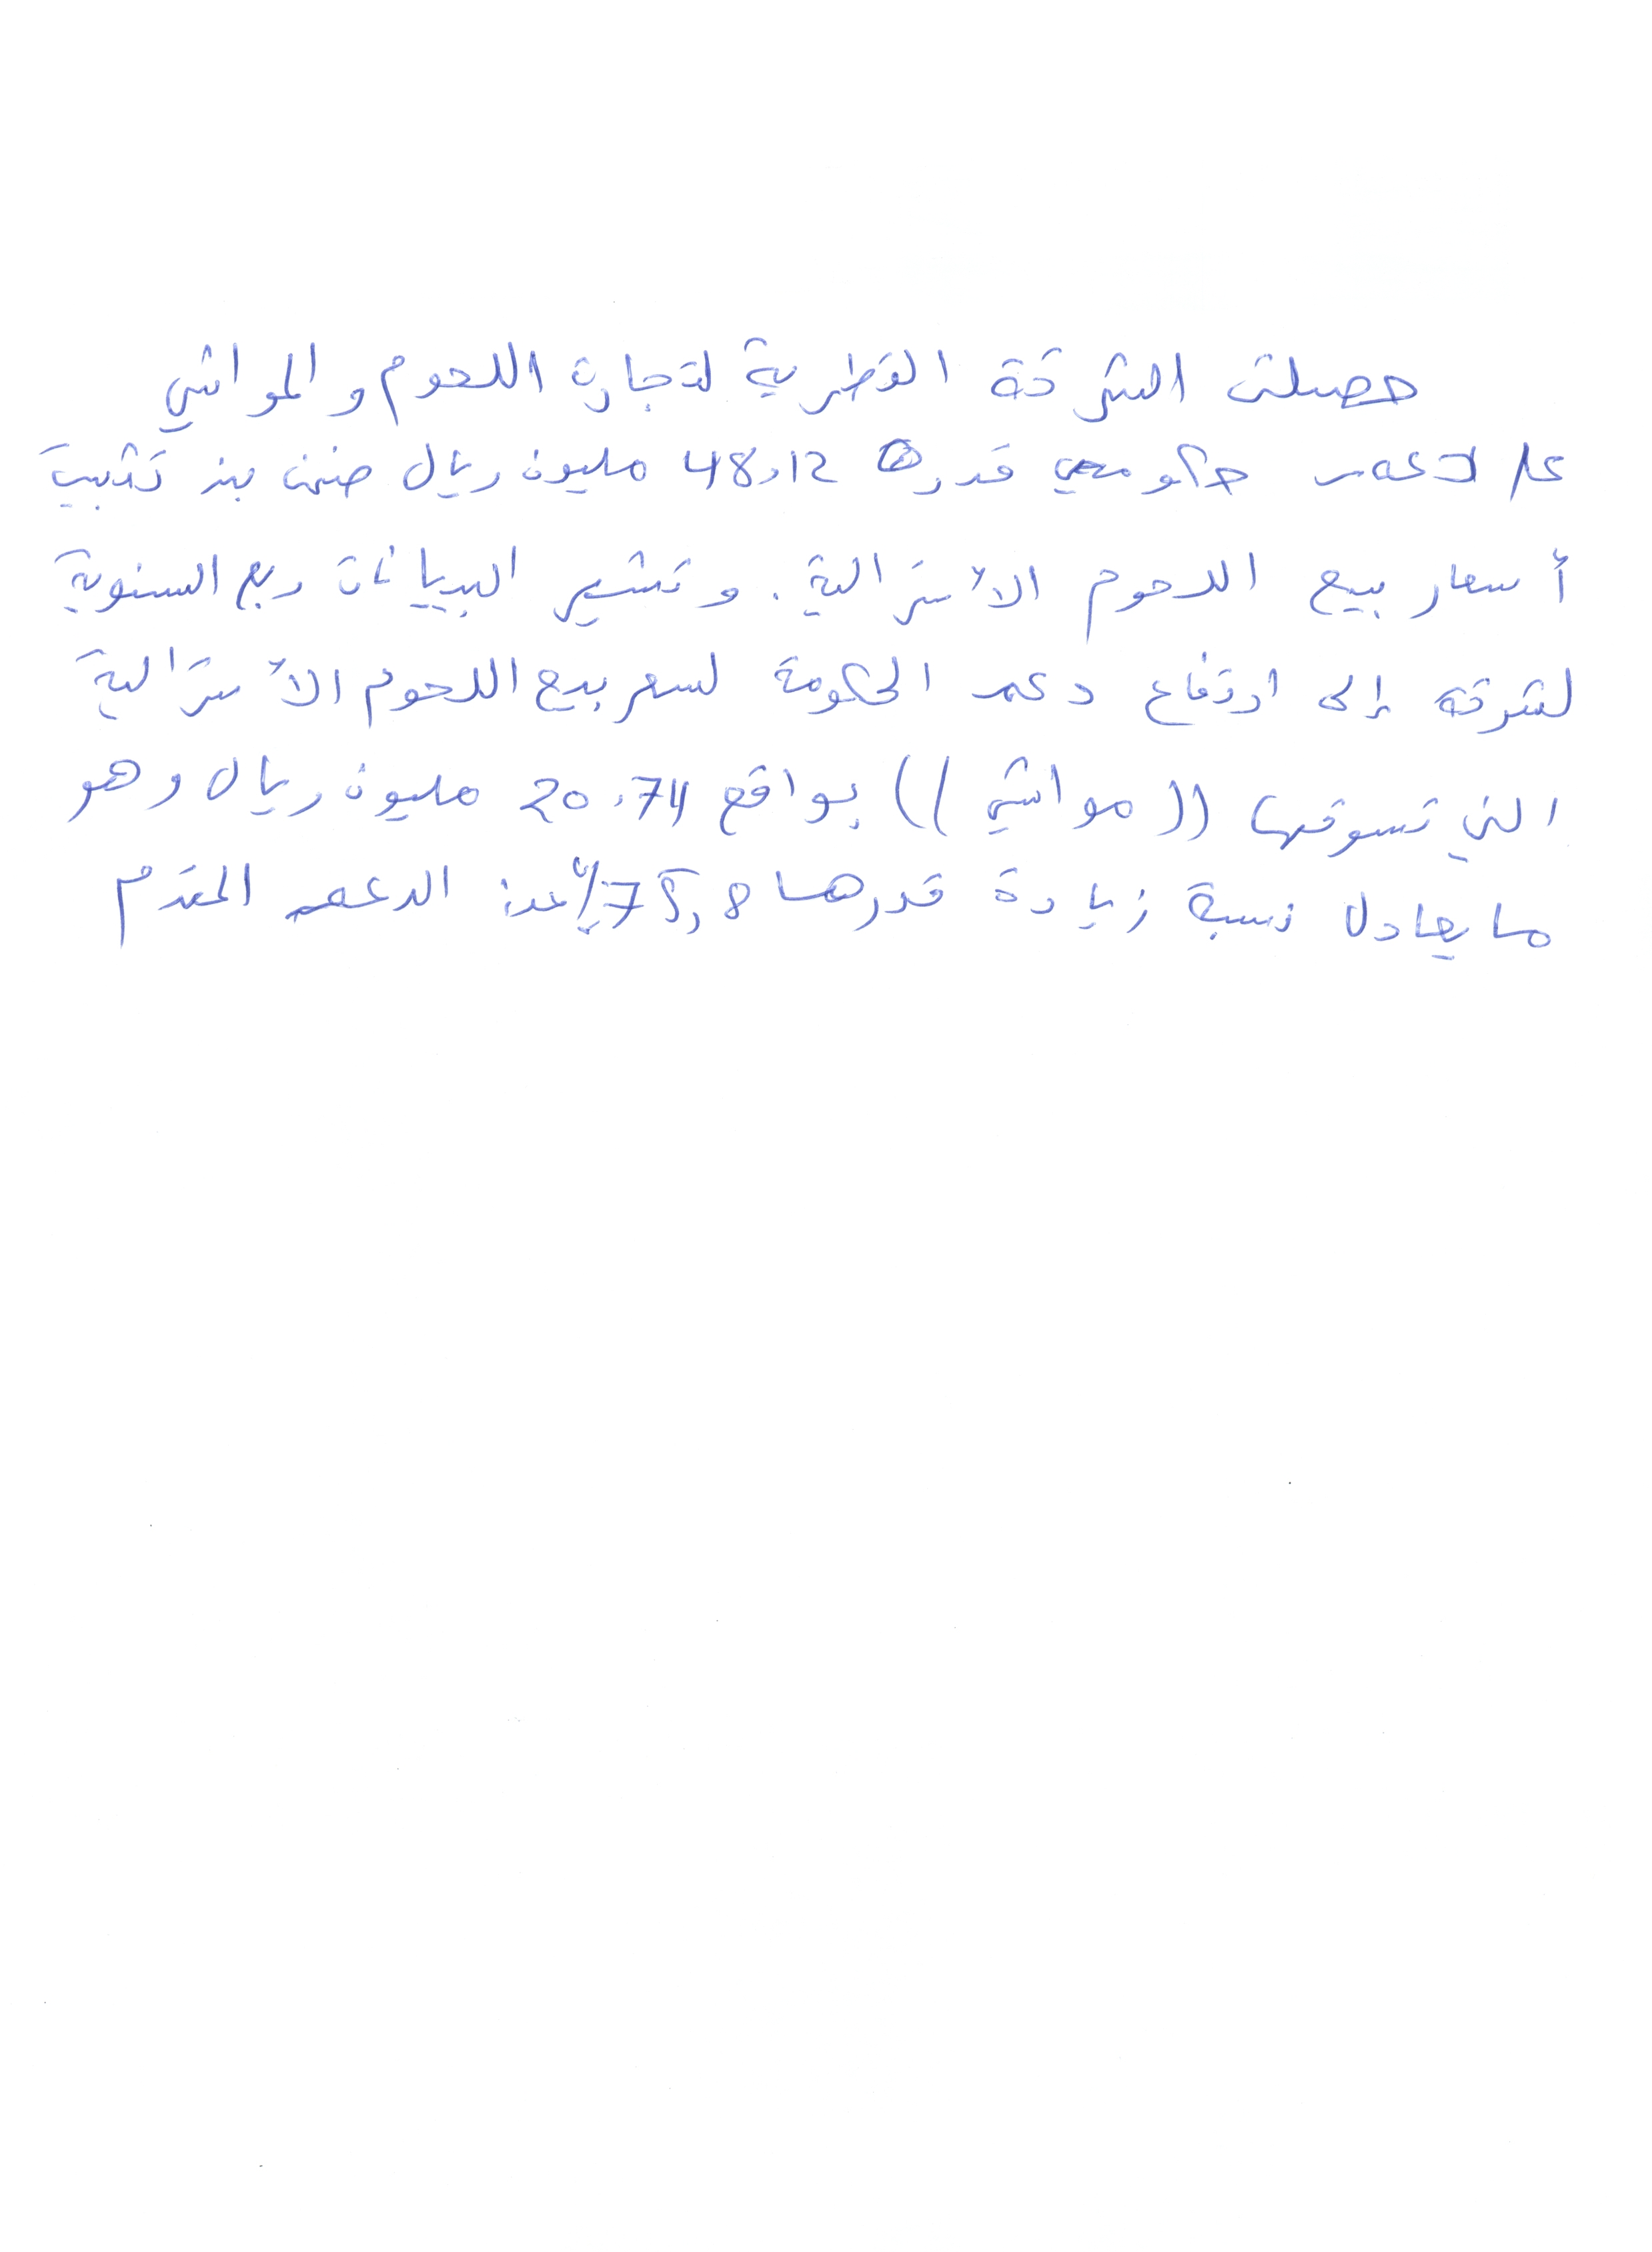 حصلت الشركة القطرية لتجارة اللحوم والمواشي
على دعم حكومي قدره 48,12 مليون ريال ضمن بند تثبيت
أسعار بيع اللحوم الأسترالية. وتشير البيانات ربع السنوية
لشركة إلى ارتفاع دعم الحكومة لسعر بيع اللحوم الأسترالية
التي تسوقها ((مواشي)) بواقع 20,74 مليون ريال وهو
ما يعادل نسبة زيادة قدرها 75,8% عن الدعم المقدم